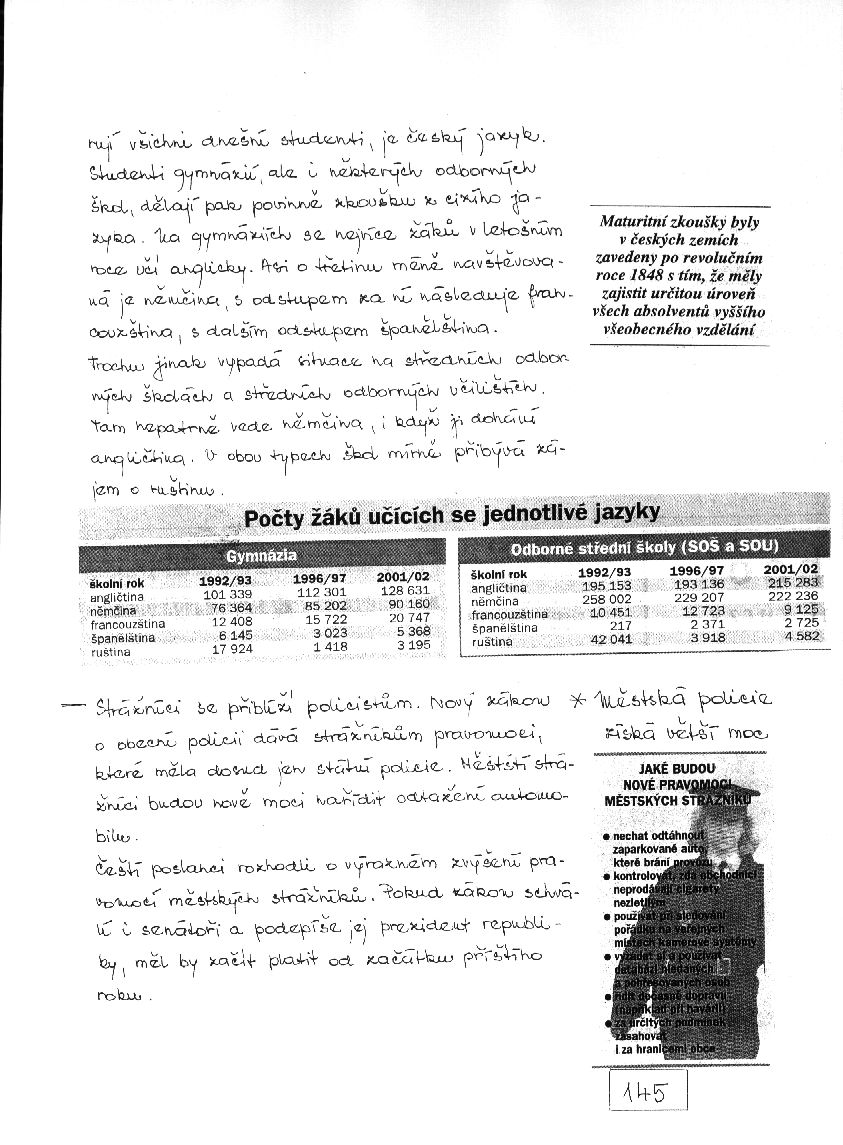 rují všichni dnešní studenti, je český jazyk.
Studenti gymnázií, ale i některých odborných
škol, dělají pak povinně zkoušku z cizího ja-
zyka. Na gymnáziích se nejvíce žáků v letošním
roce učí anglicky. Asi o třetinu méně navštěvova-
ná je němčina, s odstupem za ní následuje fran-
couzština, s dalším odstupem španělština.
Trochu jinak vypadá situace na středních odbor
ných školách a středních odborných učilištích.
Tam nepatrně vede němčina, i když ji dohání
angličtina. V obou typech škol mírně přibývá zá-
jem o ruštinu.
Maturitní zkoušky byly
v českých zemích
zavedeny po revolučním
roce 1848 s tím, že měly
zajistit určitou úroveň
všech absolventů vyššího
všeobecného vzdělání
Počty žáků učících se jednotlivé jazyky
Gymnázia
školní rok 1992/93 1996/97 2001/02
angličtina 101 339 112 301 128 631
němčina 76 364 85 202 90 160
francouzština 12 408 15 722 20 747
španělština 6 145 3 023 5 368
ruština 17 924 1 418 3 195
Odborné střední školy (SOŠ a SOU)
školní rok 1992/93 1996/97 2001/02
angličtina 195 153 193 136 215 283
němčina 258 002 229 207 222 236
francouzština 10 451 12 723 9 125
španělština 217 2 371 2 725
ruština 42 041 3 918 4 582
— Strážníci se přiblíží policistům. Nový zákon
o obecní policii dává strážníkům pravomoci,
které měla dosud jen státní policie. Městští strá-
žníci budou nově moci nařídit odtažení automo-
bilu.
Čeští poslanci rozhodli o výrazném zvýšení pra-
vomocí městských strážníků. Pokud zákon schvá-
lí i senátoři a podepíše jej prezident republi-
ky, měl by začít platit od začátku příštího
roku.
* Městská policie
získá větší moc
JAKÉ BUDOU
NOVÉ PRAVOMOCI
MĚSTSKÝCH STRÁŽNÍKŮ
● nechat odtáhnout
zaparkované auto,
které brání provozu
● kontrolovat, zda obchodníci
neprodávají cigarety
nezletilým
● používat při sledování
pořádku na veřejných
místech kamerové systémy
● vyžádat si a používat
databázi hledaných
a pohřešovaných osob
● řídit dočasně dopravu
(například při havárii)
● za určitých podmínek
zasahovat
i za hranicemi obce
145